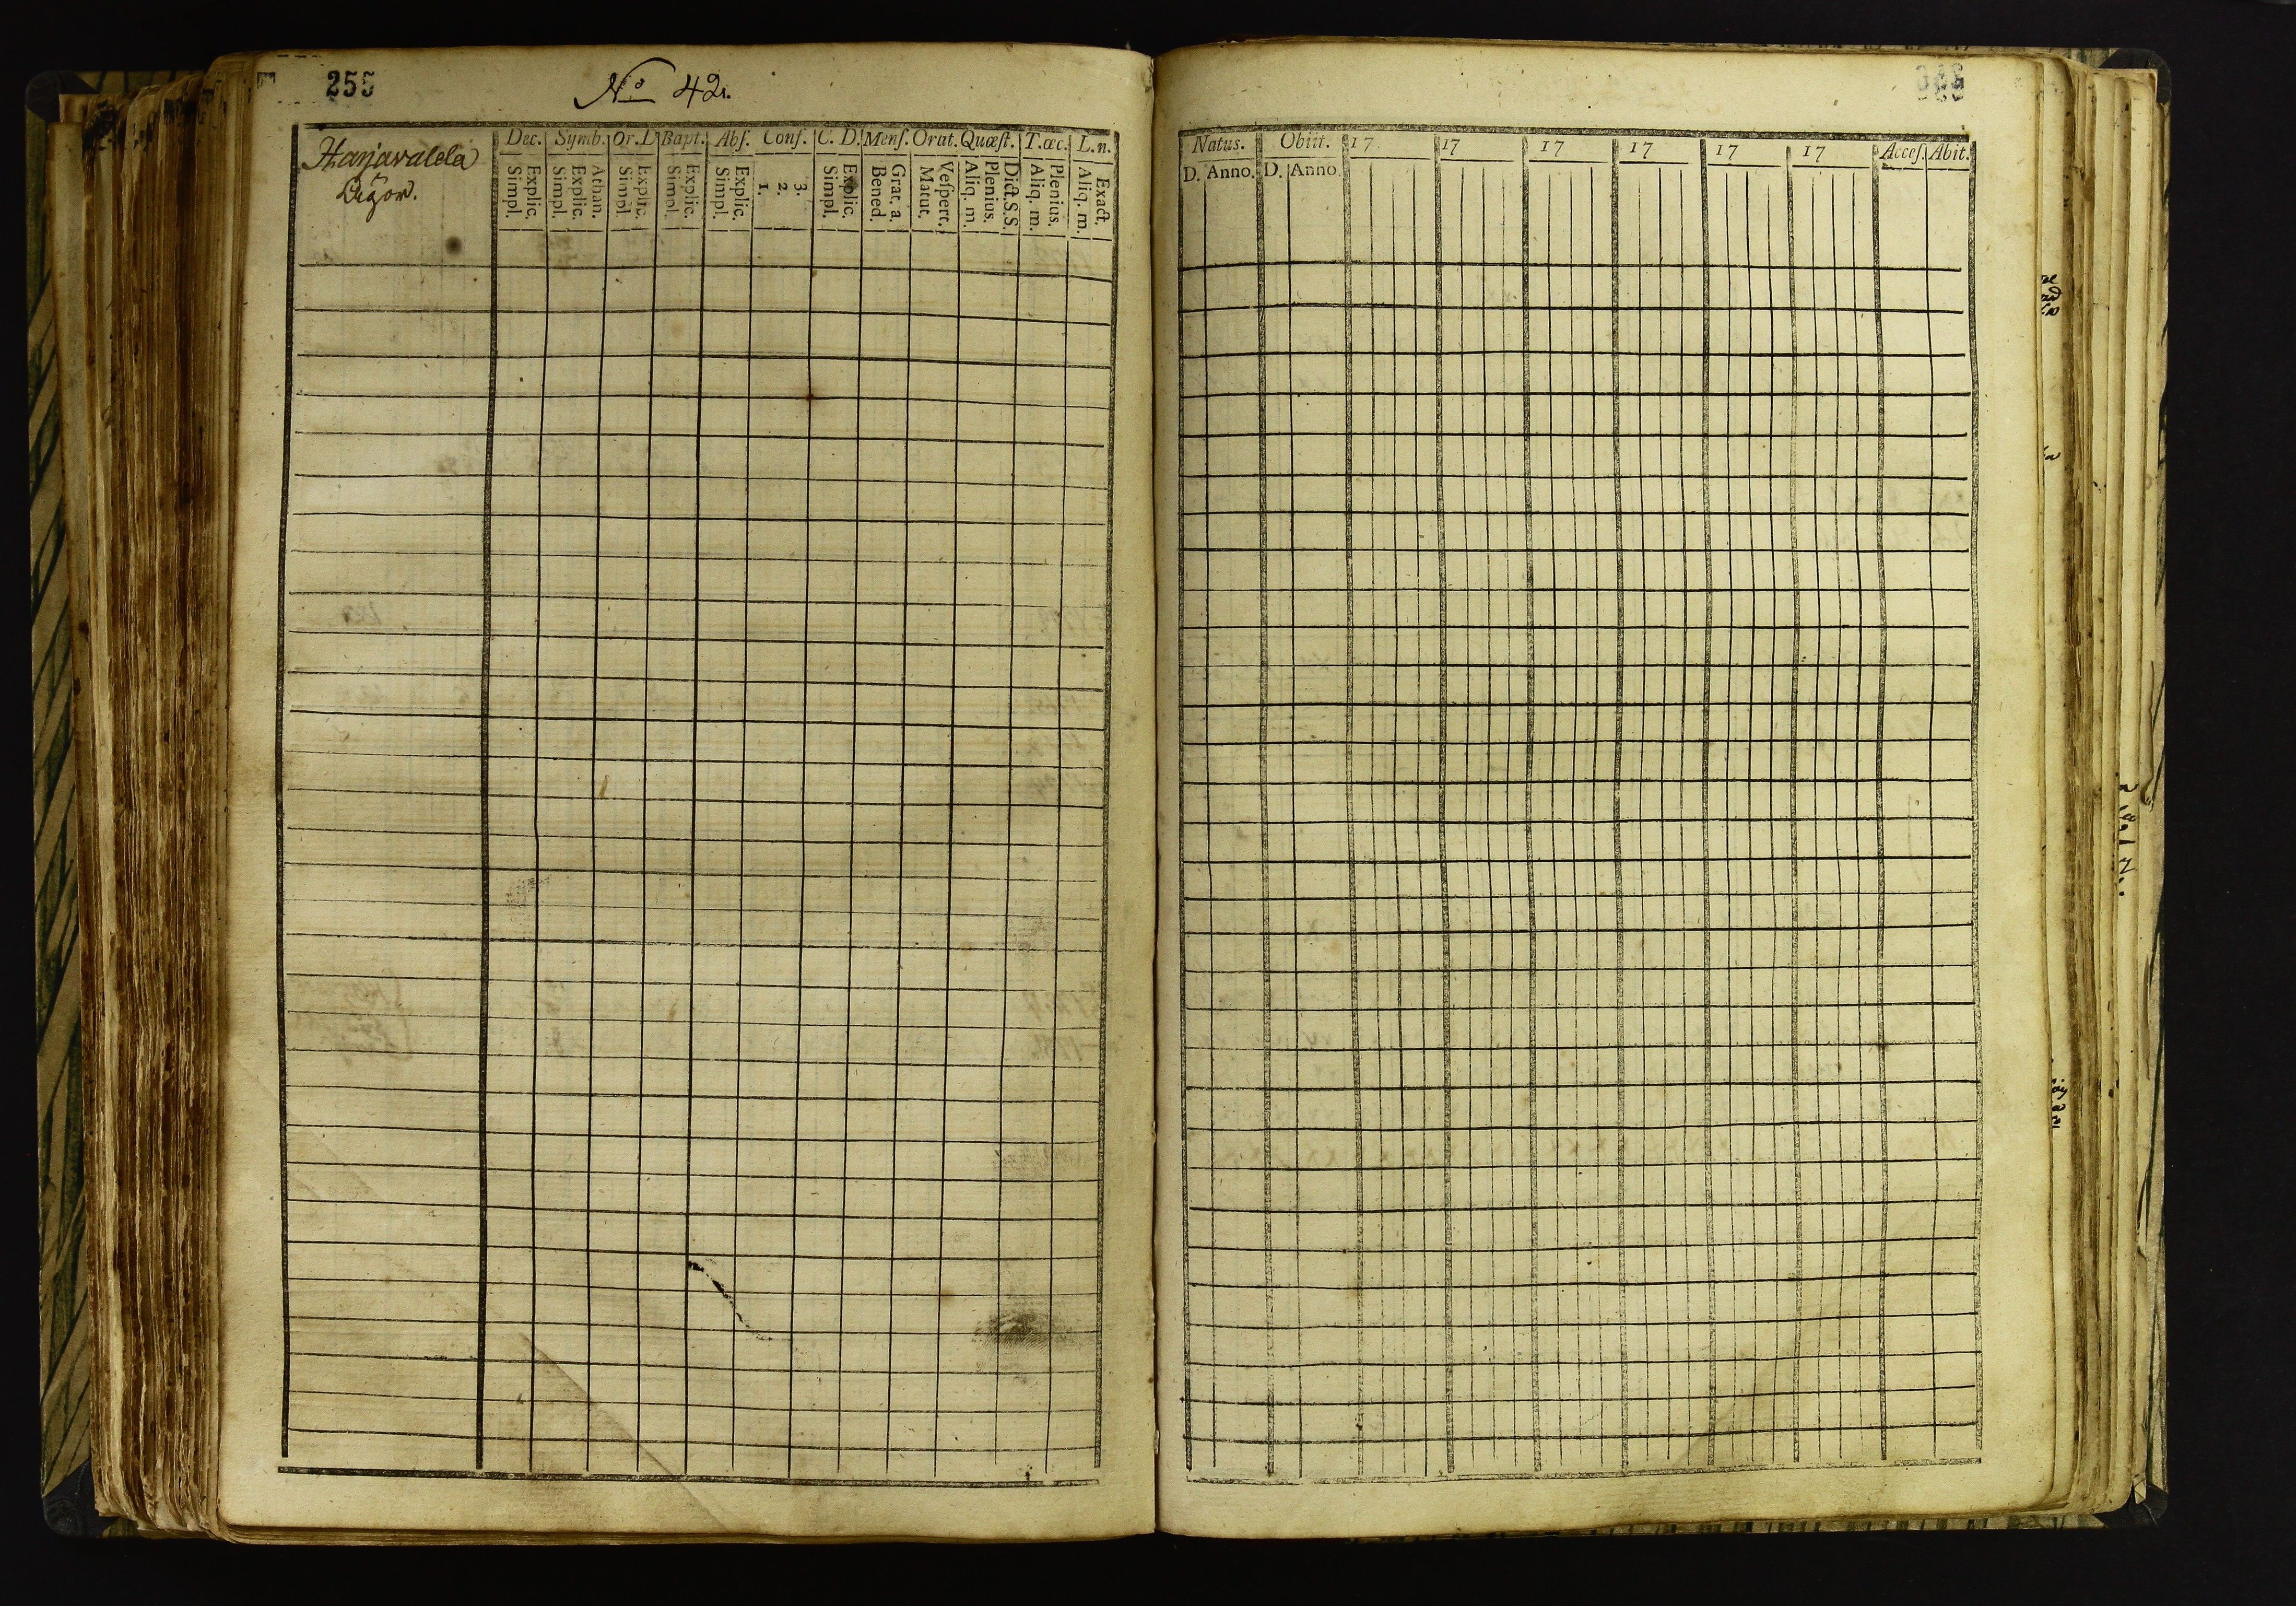 255
No 42.
Harjavalda
Dec. Symb. Or. D Bapt. Abſ. Conf. C. D. Menſ. Orat. Quæſt. T. œc. L. n.
Simpl. Explic. Simpl. Explic. Athan. Simpl. Explic. Simpl. Explic. Simpl. Explic. 1. 2. 3. Simpl. Explic. Bened. Grat. a. Matut. Veſpert. Aliq. m. Plenius. Dict. S.S. Aliq. m. Plenius. Aliq. m. Exact.
Natus. Obiit. 17 17 17 17 17 17 Acceſ. Abit.
D. Anno. D. Anno.